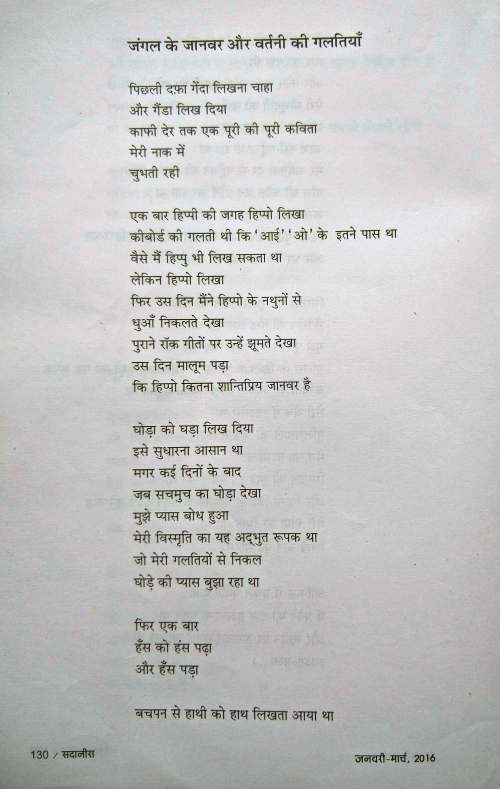 जंगल के जानवर और वर्तनी की गलतियाँ
पिछली दफ़ा गेंदा लिखना चाहा
और गैंडा लिख दिया
काफी देर तक एक पूरी की पूरी कविता
मेरी नाक में
चुभती रही
एक बार हिप्पी की जगह हिप्पो लिखा
कीबोर्ड की गलती थी कि ‘आई’ ‘ओ’ के इतने पास था
वैसे मैं हिप्पु भी लिख सकता था
लेकिन हिप्पो लिखा
फिर उस दिन मैंने हिप्पो के नथुनों से
धुआँ निकलते देखा
पुराने रॉक गीतों पर उन्हें झूमते देखा
उस दिन मालूम पड़ा
कि हिप्पो कितना शान्तिप्रिय जानवर है
घोड़ा को घड़ा लिख दिया
इसे सुधारना आसान था
मगर कई दिनों के बाद
जब सचमुच का घोड़ा देखा
मुझे प्यास बोध हुआ
मेरी विस्मृति का यह अद्भुत रूपक था
जो मेरी गलतियों से निकल
घोड़े की प्यास बुझा रहा था
फिर एक बार
हँस को हंस पढ़ा
और हँस पड़ा
बचपन से हाथी को हाथ लिखता आया था
130 / सदानीरा
जनवरी-मार्च, 2016